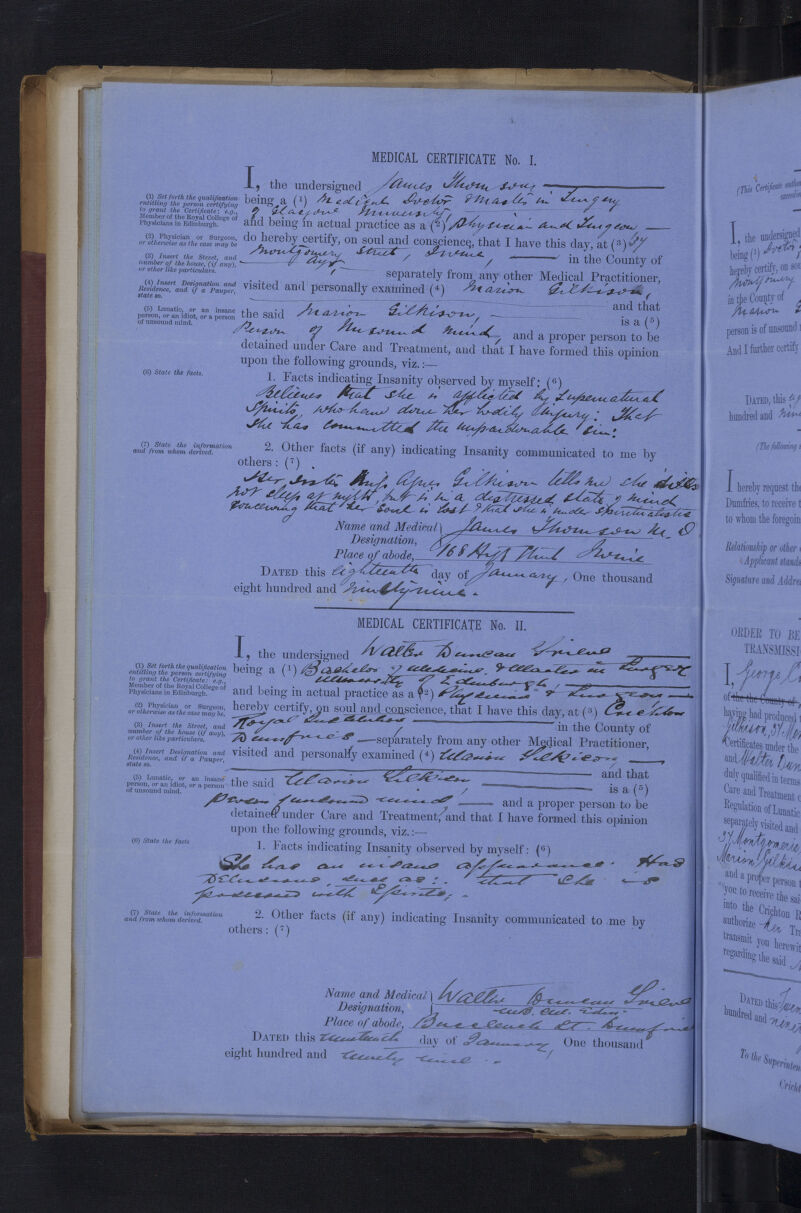 MEDICAL CERTIFICATE No. I.
I, the undersigned James Thomson
(1) Set forth the qualification
entitling the person certifying
to grant the Certificate: e.g.,
Member of the Royal College of
Physicians in Edinburgh.
being a (1) Medical Doctor & Master in Surgery
of Glasgow University,
and being in actual practice as a (2) Physician and Surgeon,
(2) Physician or Surgeon,
or otherwise as the case may be
do hereby certify, on soul and conscience, that I have this day, at (3) 37
Montgomery Street, Irvine, in the County of
(3) Insert the Street, and
number of the house, (if any),
or other like particulars.
Ayr, separately from any other Medical Practitioner,
(4) Insert Designation and
Residence, and if a Pauper,
state so.
visited and personally examined (4) Marion Gilkison,
and that
(5) Lunatic, or an insane
person, or an idiot, or a person
of unsound mind.
the said Marion Gilkison, is a (5)
Person of Unsound mind, and a proper person to be
detained under Care and Treatment, and that I have formed this opinion
upon the following grounds, viz.:—
(6) State the facts.
1. Facts indicating Insanity observed by myself: (6)
Believes that she is afflicted by Supernatural
Spirits, who have done her bodily injury: That
she has committed the unpardonable sin.
(7) State the information
and from whom derived.
2. Other facts (if any) indicating Insanity communicated to me by
others: (7)
Her Sister Miss Agnes Gilkison tells me she
not sleep at night, but is in a distressed state of mind
conceiving that her soul is lost & that she is under spiritualists
Name and Medical Designation, James Thomson M.D
Place of abode, 168 High Street Irvine
DATED this Eighteenth day of January, One thousand
eight hundred and Ninety nine.
MEDICAL CERTIFICATE No. II.
I, the undersigned Walter Duncan Grieve
(1) Set forth the qualification
entitling the person certifying
to grant the Certificate: e.g.,
Member of the Royal College of
Physicians in Edinburgh.
being a (1) Bachelor of Medicine & Master in Surgery
University of Edinburgh,
and being in actual practice as a (2) Physician & Surgeon
(2) Physician or Surgeon,
or otherwise as the case may be.
hereby certify, on soul and conscience, that I have this day, at (3) Crichton
Royal Institution in the County of
(3) Insert the Street, and
number of the house (if any),
or other like particulars.
Dumfries separately from any other Medical Practitioner,
(4) Insert Designation and
Residence, and if a Pauper,
state so.
visited and personally examined (4) Marion Gilkison
and that
(5) Lunatic, or an insane
person, or an idiot, or a person
of unsound mind.
the said Marion Gilkison is a (5)
person of unsound mind, and a proper person to be
detained under Care and Treatment, and that I have formed this opinion
upon the following grounds, viz.:—
(6) State the facts
1. Facts indicating Insanity observed by myself: (6)
She has an insane appearance. Has
Delusions such as: that she is
possessed with Spirits,
(7) State the information
and from whom derived.
2. Other facts (if any) indicating Insanity communicated to me by
others: (7)
Name and Medical Designation, Walter Duncan Grieve
M.B. C.M. Edin.
Place of abode, Buccleuch St. Dumfries
DATED this nineteenth day of January, One thousand
eight hundred and ninety nine
I, the undersigned
being (1) Doctor
hereby certify, on
Montgomery
in the County of
Marion
person is of unsound
And I further certify
DATED, this
hundred and
(The following
I hereby request the
Dumfries, to receive
to whom the foregoing
Relationship or other
Applicant
Signature and
ORDER TO BE
TRANSMISSI
I, George
of the County of
having had produced
Gilkison, 37
Certificates under the
and Walter Dun
duly qualified in terms
Care and Treatment
Regulation of Lunatic
separately visited and
37 Montgomerie
Marion Gilkison
and a proper person
you to receive the said
into the Crichton R
authorize her
transmit you herewith
regarding the said
DATED this
hundred and
To the Superinten
Cricht